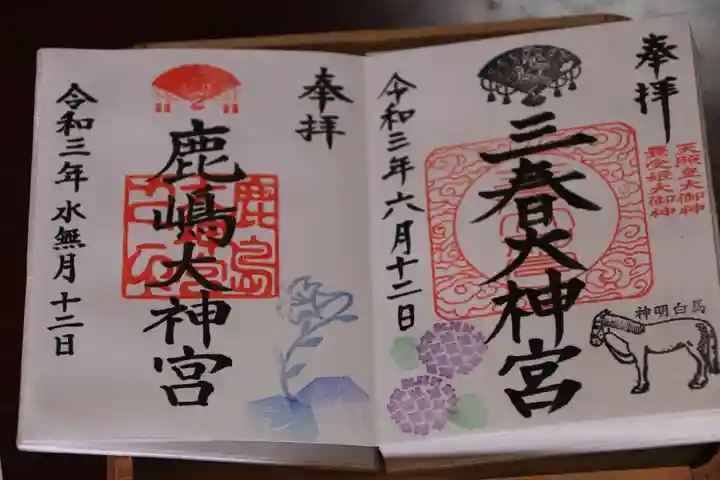 奉拝
三春大神宮
天照皇大御神
豊受姫大御神
令和三年六月十二日
神明白馬
奉拝
鹿嶋大神宮
令和三年水無月十二日